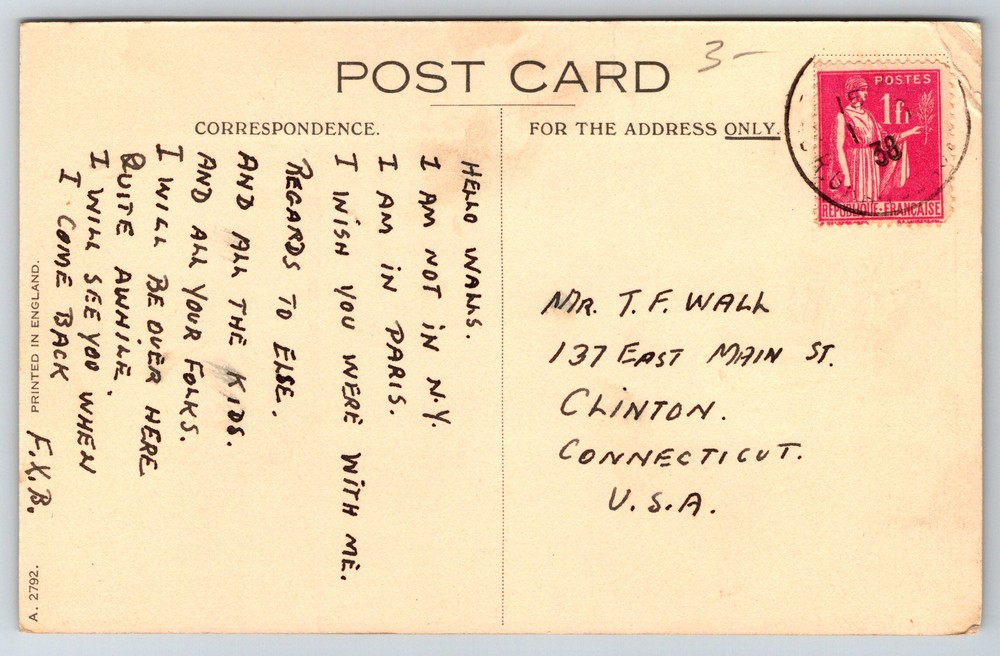 POST CARD
3-
CORRESPONDENCE.
FOR THE ADDRESS ONLY.
HELLO WALLS.
I AM NOT IN N.Y.
I AM IN PARIS.
I WISH YOU WERE WITH ME.
REGARDS TO ELSE.
AND ALL THE KIDS.
AND ALL YOUR FOLKS.
I WILL BE OVER HERE
QUITE AWHILE.
I WILL SEE YOU WHEN
I COME BACK
F.X.B.
PRINTED IN ENGLAND.
A. 2792.
POSTES
1fr
REPUBLIQUE-FRANCAISE
15
1
38
MR. T.F. WALL
137 EAST MAIN ST.
CLINTON.
CONNECTICUT.
U.S.A.